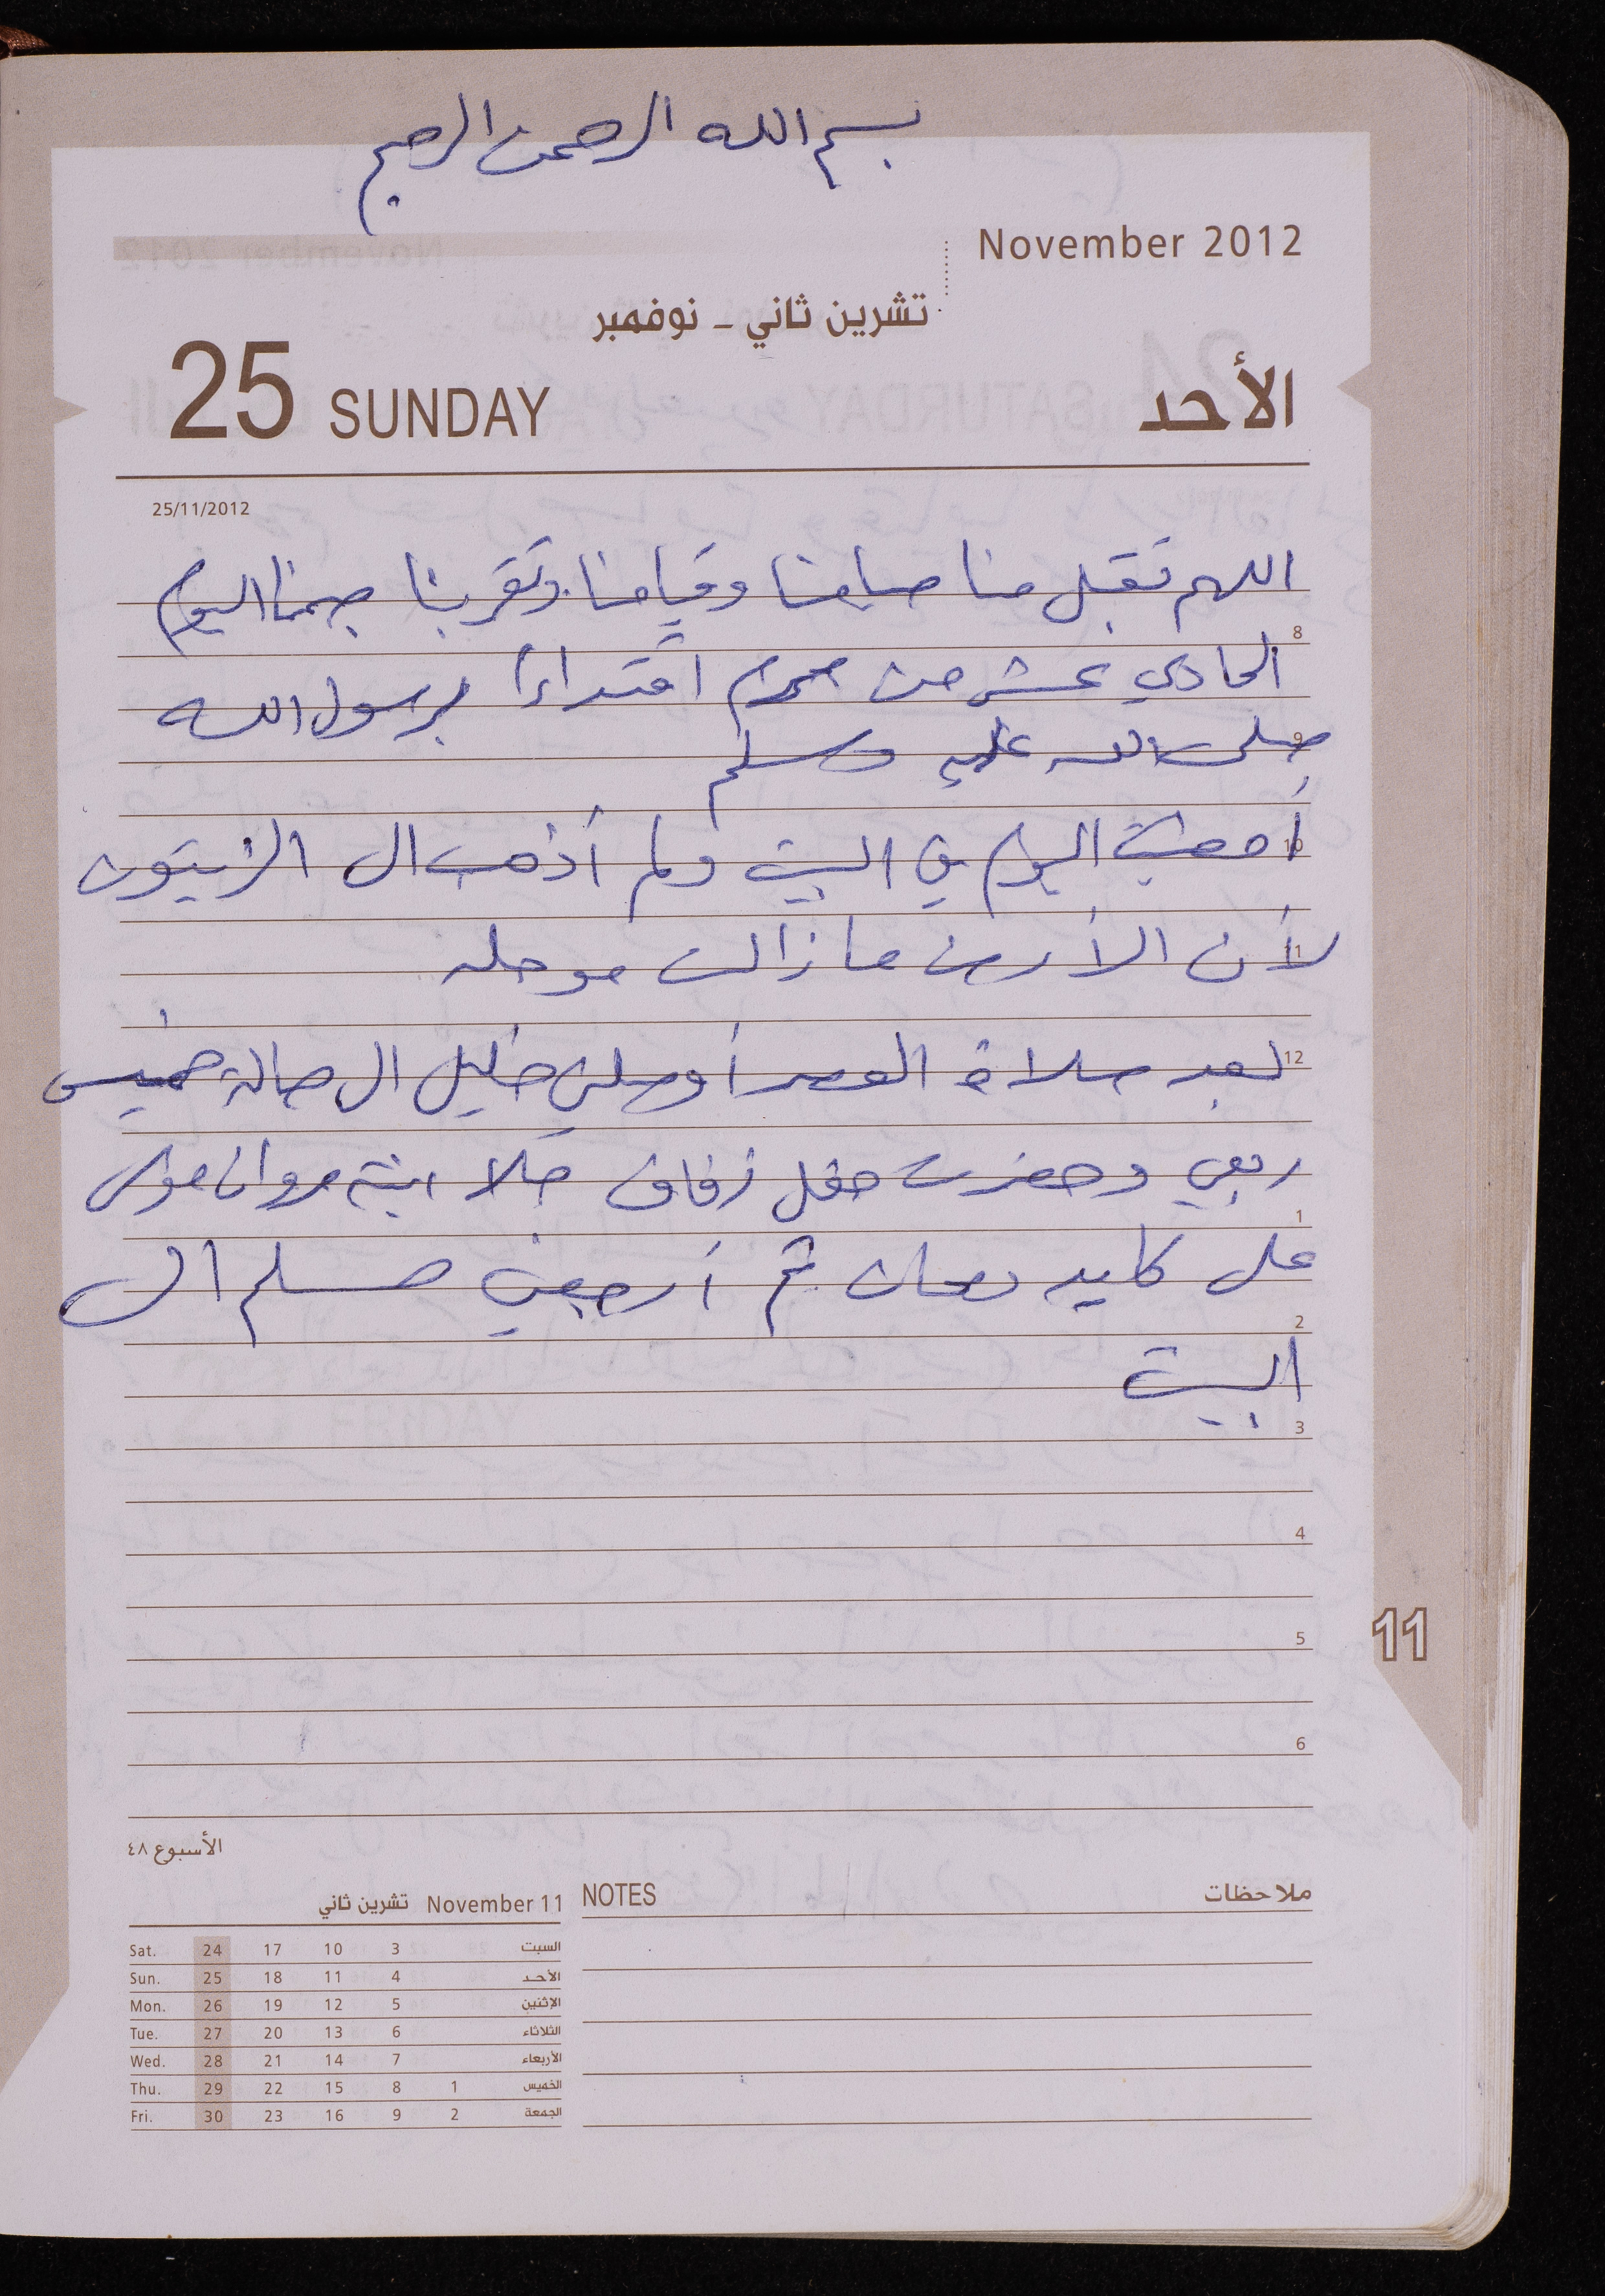 بسم الله الرحمن الرحيم
November 2012
تشرين ثاني - نوفمبر
25 SUNDAY الأحد
25/11/2012
اللهم تقبل منا صيامنا وقيامنا وتقربنا صمنا اليوم
8
الحادي عشر من محرم اقتداءاً برسول الله
9
صلى الله عليه وسلم
10
أمضيت اليوم في البيت ولم أذهب ال الزيتون
11
لأن الأرض ما زالت موحله
12
بعد صلاة العصر أوصلني خليل ال صالة خميس
ربعي وحضرت حفل زفاف حلا ابنة مروان موسى
1
على كايد ثم أرجعني مسلم ال
2
البيت
3
4
5
11
6
الأسبوع ٤٨
November 11 تشرين ثاني
NOTES ملاحظات
Sat. 24 17 10 3 السبت
Sun. 25 18 11 4 الأحد
Mon. 26 19 12 5 الإثنين
Tue. 27 20 13 6 الثلاثاء
Wed. 28 21 14 7 الأربعاء
Thu. 29 22 15 8 1 الخميس
Fri. 30 23 16 9 2 الجمعة